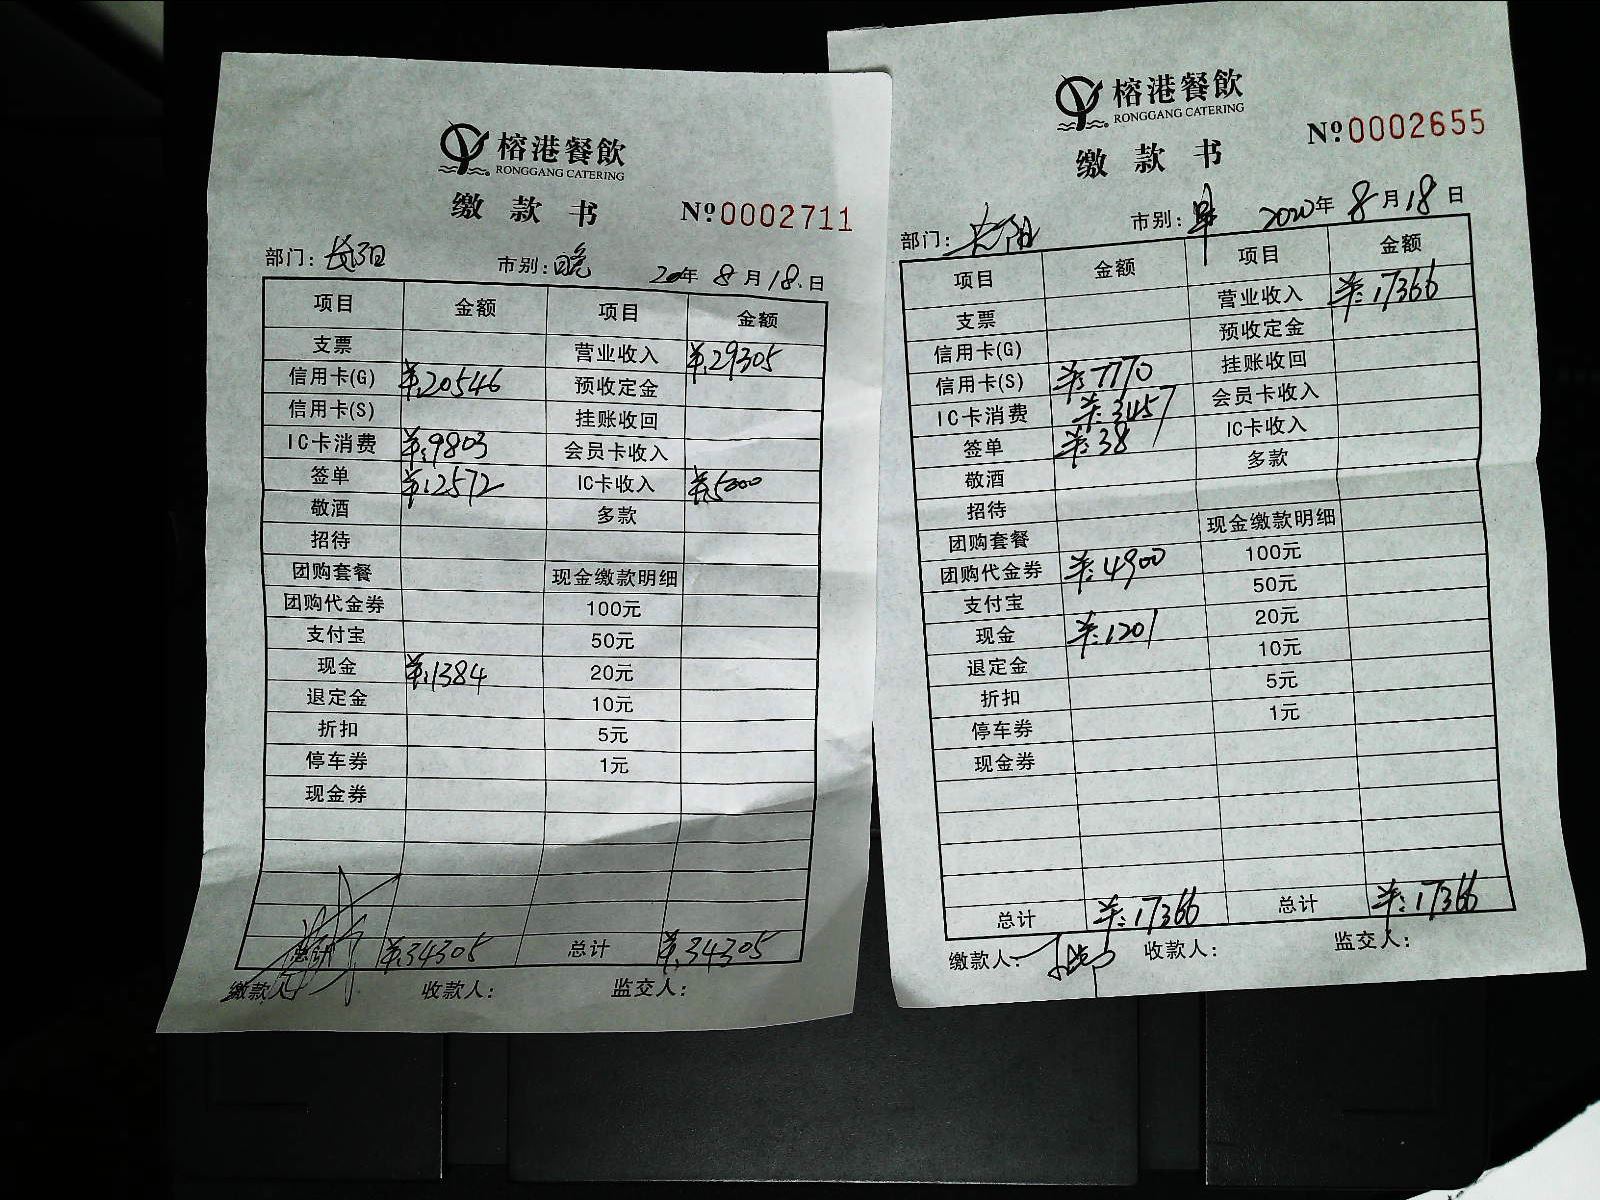 榕港餐飲
RONGGANG CATERING
缴款书 №0002711
部门：长阳 市别：晚 20年8月18日
项目 金额 项目 金额
支票 营业收入 ¥29305
信用卡(G) ¥20546 预收定金
信用卡(S) 挂账收回
IC卡消费 ¥9803 会员卡收入
签单 ¥2572 IC卡收入 ¥5000
敬酒 多款
招待
团购套餐 现金缴款明细
团购代金券 100元
支付宝 50元
现金 ¥1384 20元
退定金 10元
折扣 5元
停车券 1元
现金券
总计 ¥34305 总计 ¥34305
缴款人 收款人： 监交人：
榕港餐飲
RONGGANG CATERING
缴款书 №0002655
部门：长阳 市别：早 2020年8月18日
项目 金额 项目 金额
支票 营业收入 ¥17366
信用卡(G) 预收定金
信用卡(S) ¥7770 挂账收回
IC卡消费 ¥3457 会员卡收入
签单 ¥38 IC卡收入
敬酒 多款
招待
团购套餐 现金缴款明细
团购代金券 ¥4900 100元
支付宝 50元
现金 ¥1201 20元
退定金 10元
折扣 5元
停车券 1元
现金券
总计 ¥17366 总计 ¥17366
缴款人： 收款人： 监交人：